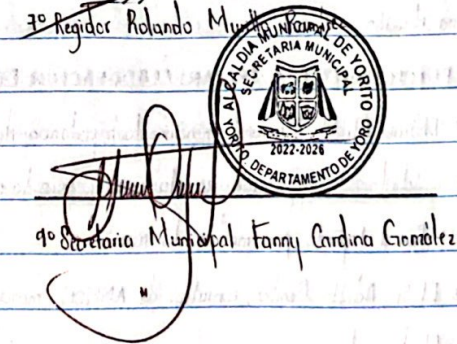 7º Regidor Rolando
ALCALDIA MUNICIPAL DE YORITO
SECRETARIA MUNICIPAL
2022-2026
YORITO, DEPARTAMENTO DE YORO
9º Secretaria Municipal Fanny Cardina González